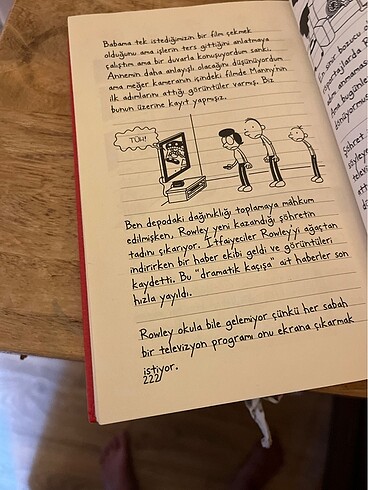 Babama tek istediğimizin bir film çekmek
olduğunu ama işlerin ters gittiğini anlatmaya
çalıştım ama bir duvarla konuşuyordum sanki.
Annemin daha anlayışlı olacağını düşünüyordum
ama meğer kameranın içindeki filmde Manny'nin
ilk adımlarını attığı görüntüler varmış. Biz
bunun üzerine kayıt yapmışız.
TÜH!
Ben depodaki dağınıklığı toplamaya mahkum
edilmişken, Rowley yeni kazandığı şöhretin
tadını çıkarıyor. İtfaiyeciler Rowley'yi ağaçtan
indirirken bir haber ekibi geldi ve görüntüleri
kaydetti. Bu "dramatik kaçışa" ait haberler son
hızla yayıldı.
Rowley okula bile gelemiyor çünkü her sabah
bir televizyon programı onu ekrana çıkarmak
istiyor.
222